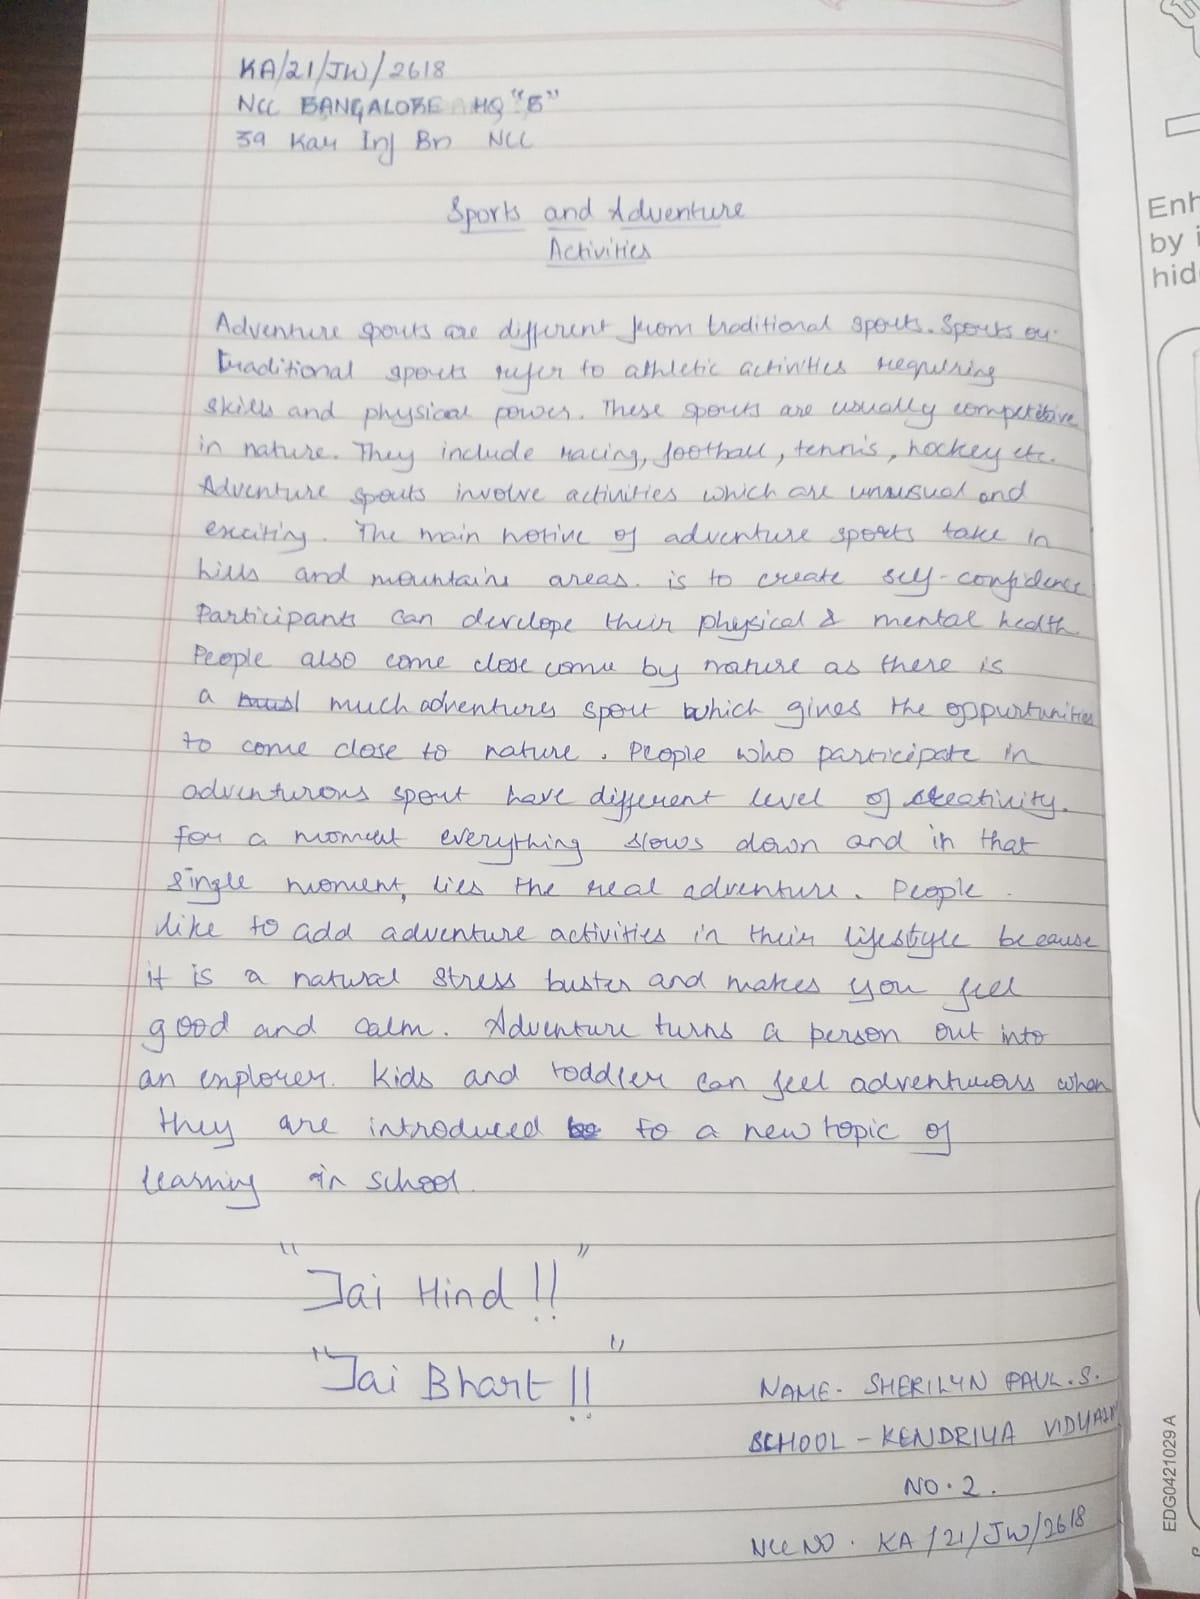 KA/21/JW/2618
NCC BANGALORE HQ "B"
39 Kar Inf Bn NCC
Sports and Adventure
Activities
Adventure sports are different from traditional sports. Sports or
traditional sports refer to athletic activities requiring
skills and physical power. These sports are usually competitive
in nature. They include racing, football, tennis, hockey etc.
Adventure sports involve activities which are unusual and
exciting. The main motive of adventure sports take in
hills and mountains areas. is to create self-confidence
Participants can develope their physical & mental health.
People also come close come by nature as there is
a much adventures sport which gives the oppurtunities
to come close to nature. People who participate in
adventurous sport have different level of creativity.
for a moment everything slows down and in that
single moment, lies the real adventure. People
like to add adventure activities in their lifestyle because
it is a natural stress buster and makes you feel
good and calm. Adventure turns a person out into
an explorer. Kids and toddler can feel adventurous when
they are introduced to a new topic of
learning in school.
"Jai Hind!!"
"Jai Bhart!!"
NAME- SHERILYN PAUL.S.
SCHOOL - KENDRIYA
NO. 2.
NCC NO. KA/21/JW/2618
Enh
by i
hid
EDG0421029 A